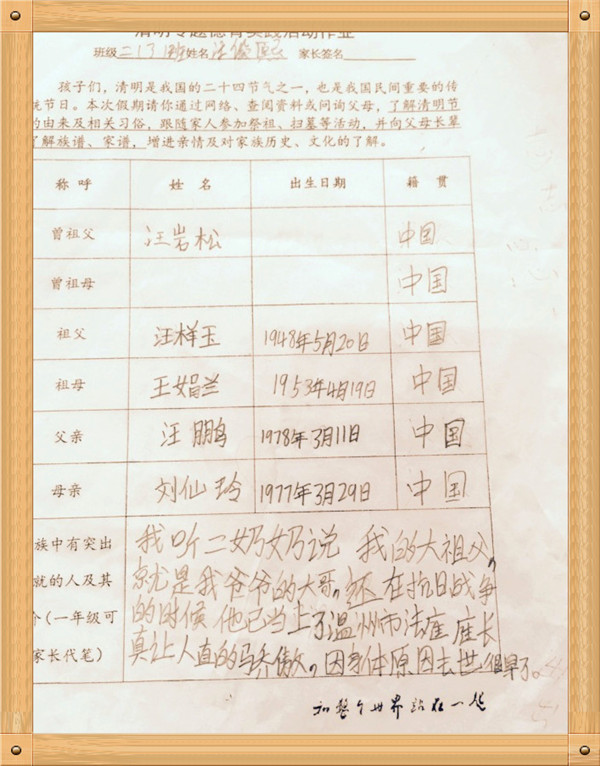 清明专题德育实践活动作业
班级 二(1)班 姓名 汪 熙 家长签名
孩子们，清明是我国的二十四节气之一，也是我国民间重要的传
统节日。本次假期请你通过网络、查阅资料或问询父母，了解清明节
的由来及相关习俗，跟随家人参加祭祖、扫墓等活动，并向父母长辈
了解族谱、家谱，增进亲情及对家族历史、文化的了解。
称呼 姓名 出生日期 籍贯
曾祖父 汪岩松 中国
曾祖母 中国
祖父 汪样玉 1948年5月20日 中国
祖母 王娟兰 1953年4月19日 中国
父亲 汪鹏 1978年3月11日 中国
母亲 刘仙玲 1977年3月29日 中国
族中有突出 我听二奶奶说 我的大祖父，
就的人及其 就是我爷爷的大哥，还在抗日战争
介(一年级可 的时候 他已当上了温州市法庭庭长
家长代笔) 真让人直的骄傲，因身体原因去世很早了。
和整个世界站在一起